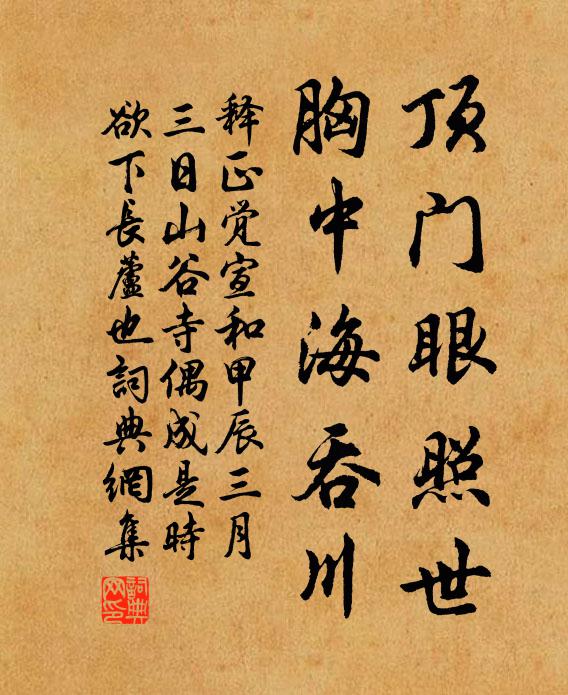 顶门眼照世
胸中海吞川
释正觉宣和甲辰三月
三日山谷寺偶成是时
欲下長蘆也詞典網集
詞典网印